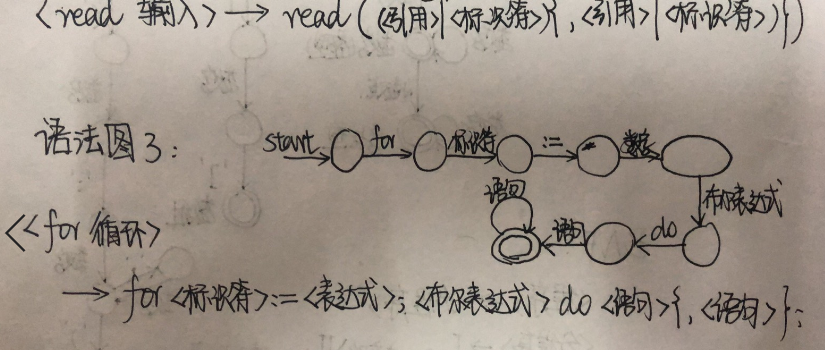 <read 输入> → read (<引用>|<标识符>){,<引用>|<标识符>)})
语法图3:
start for 标识符 := 数
语句 布尔表达式
语句 do
<<for 循环>
→ for <标识符>:=<表达式>;<布尔表达式> do <语句>{,<语句>};